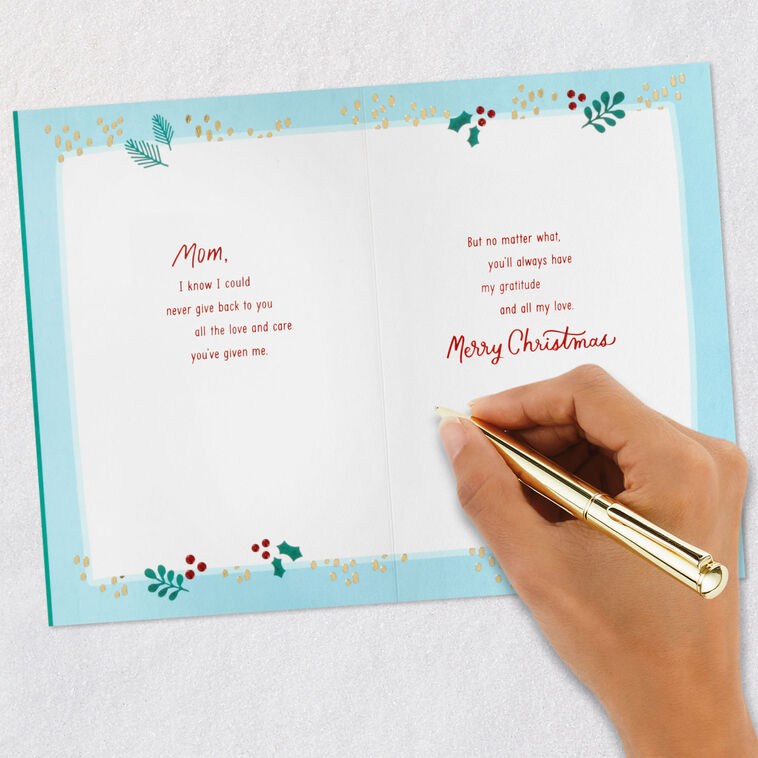 Mom,
I know I could
never give back to you
all the love and care
you've given me.
But no matter what,
you'll always have
my gratitude
and all my love.
Merry Christmas